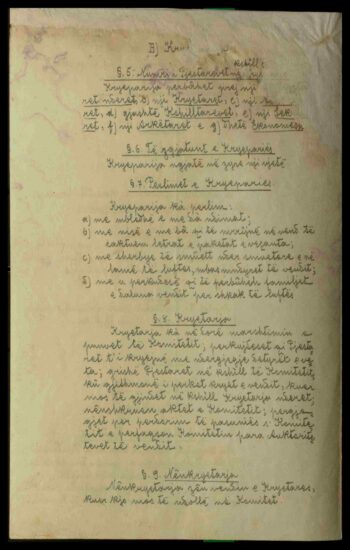 B) Krye
kshill:
§. 5. Numri i Pjestarvet në nji
Kryeparija përbâhet prej nji
ret nderet, b) nji Kryetaret, c) nji
ret, d) gjashtë Këshilltarëvet, e) nji Sek
ret, f) nji Arkëtaret e g) dhetë Ekonomëve
§. 6 Të zgjatunt e Kryeparies
Kryeparija ngjatë në zyre nji vjetë
§. 7. Perlimet e Kryeparies.
Kryeparija kà perlim:
a) me mbledhë e me dà ndimat;
b) me nisë e me bâ qi të mrrijnë në vend të
caktuem letrat e paketat e veçanta;
c) me sherbye të smutt nder smuetore e në
lamë të luftës, mbas mënyret të vendit;
d) me u perkujdesë qi të perbâhen familjet
e daluna vendit per shkak të luftës
§. 8. Kryetarja
Kryetarja kà në dorë narshtimin e
punvet të Komitetit; perkujdeset qi Pjesta
ret t'i kryejnë me ndergjegje detyrët e ve
ta; grishë Pjestaret në kshill të Komitetit,
kû gjithmonë i perket kryet e vendit, kuer
mos të gjindet në kshill Kryetarja nderet;
nënshkruen aktet e Komitetit; perge
gjet per perdorim të pasunies s' Komite
tit e perfaqson Komitetin para Aukterite
tevet të vendit.
§. 9. Nënkryetarja
Nënkryetarja zên vendin e Kryetares,
kuer kjo mos të ndollë në Komitet.